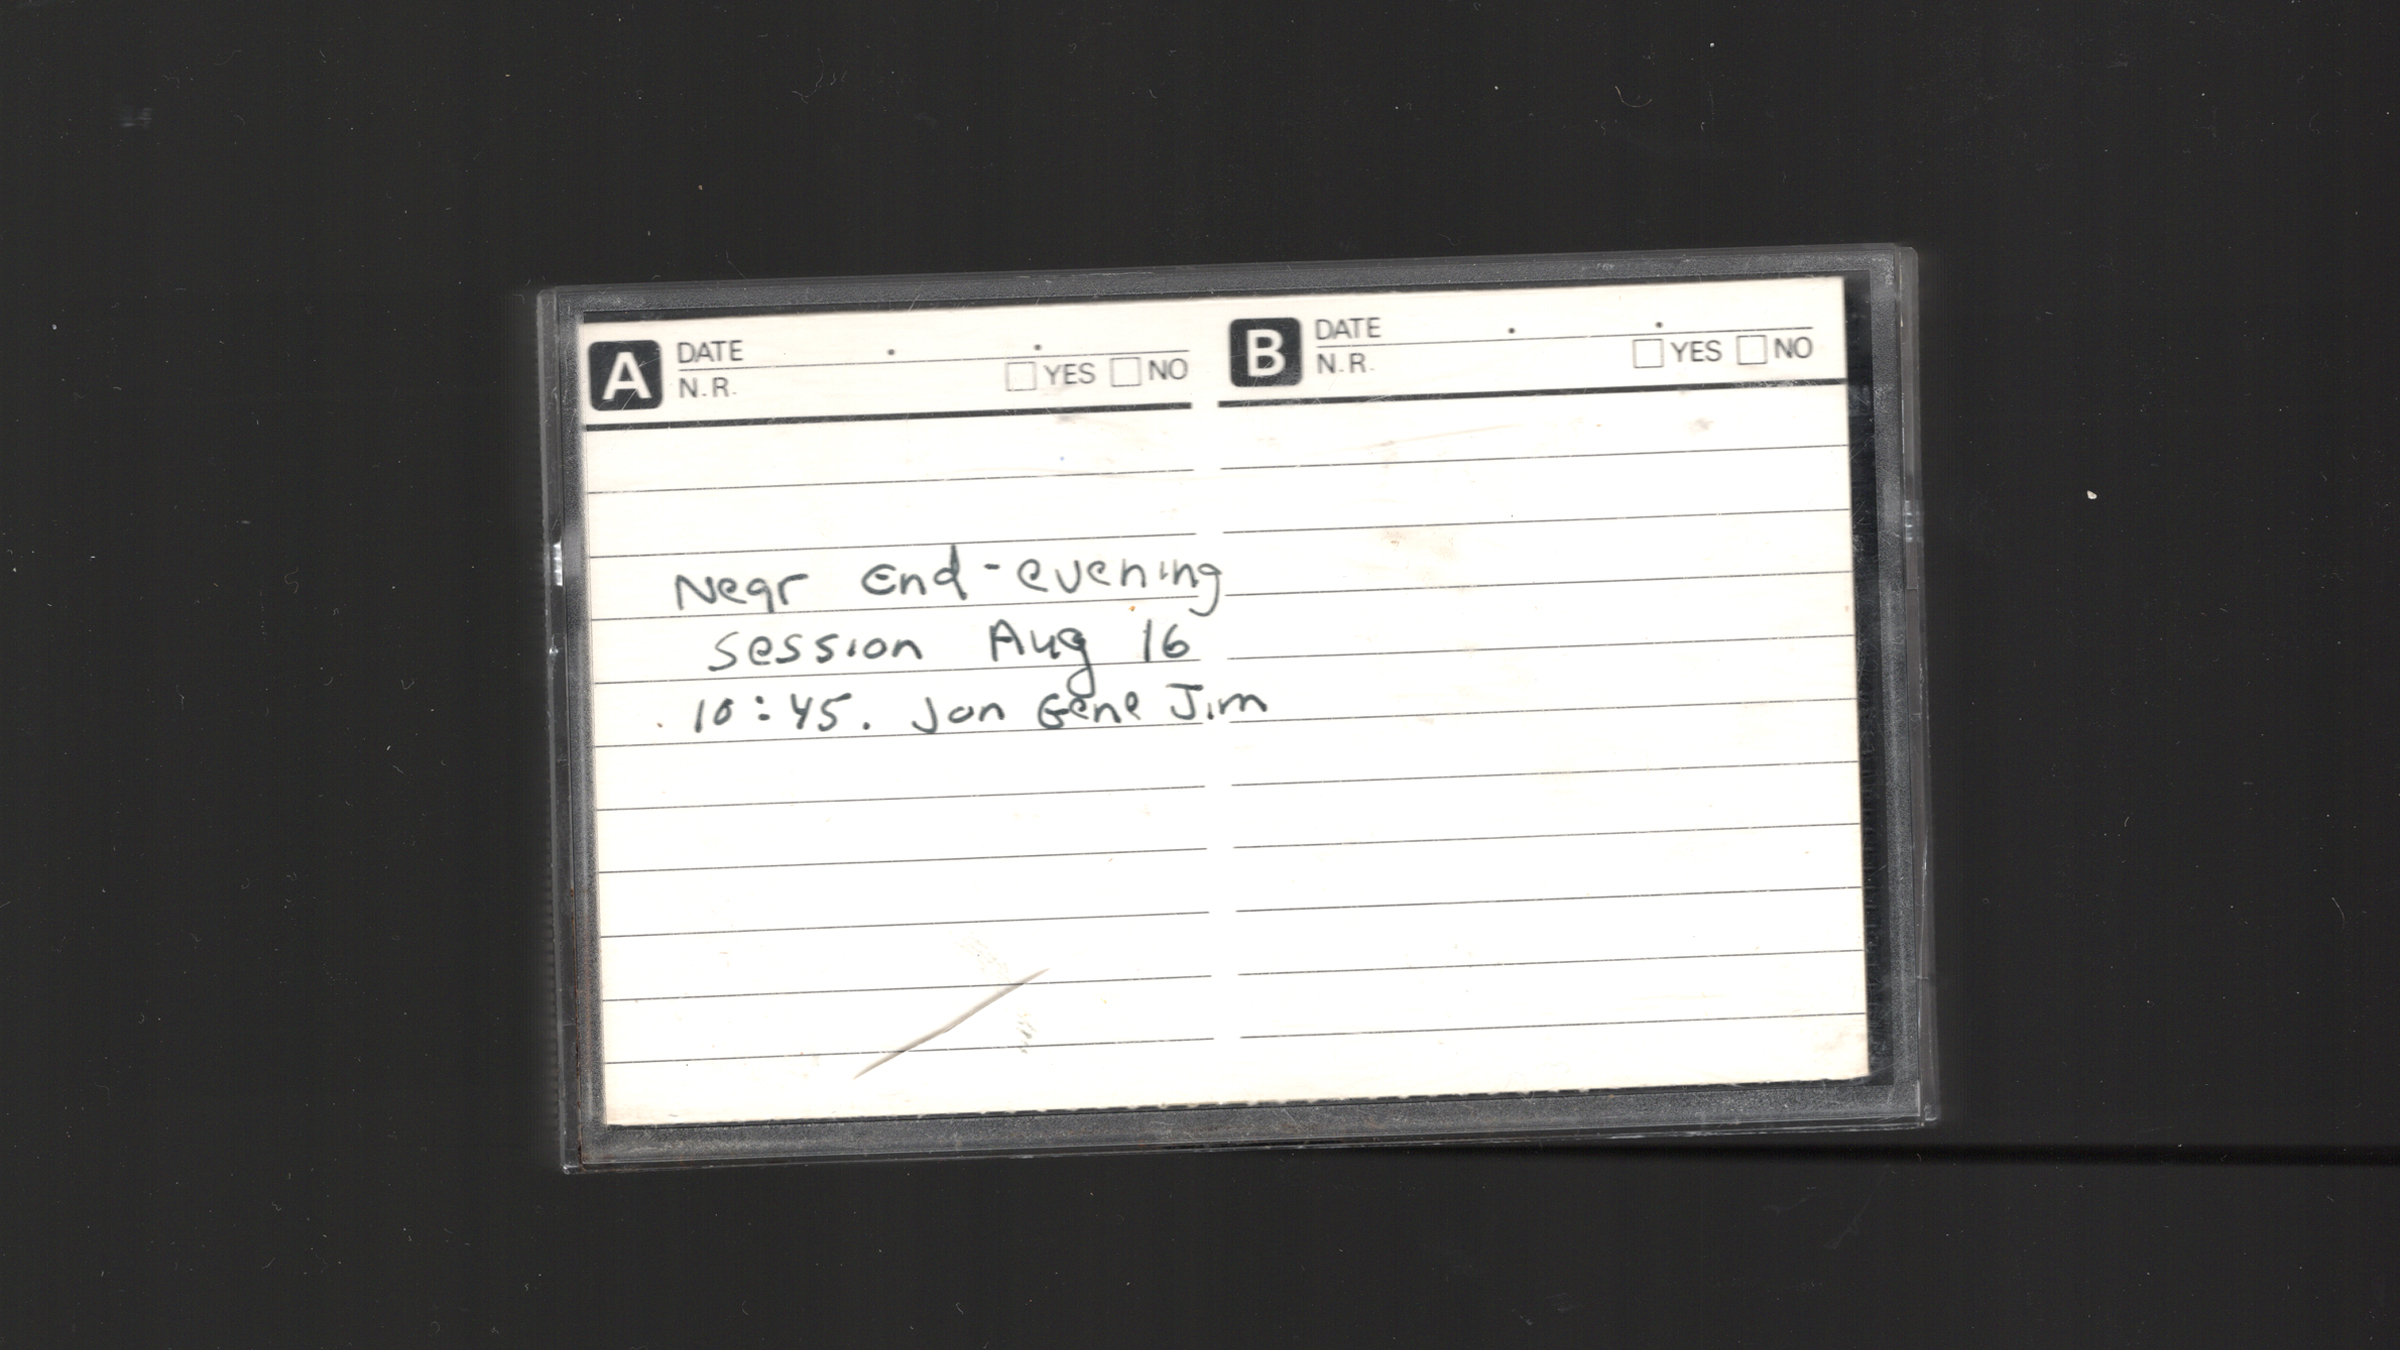 A DATE . . B DATE . .
N.R. YES NO N.R. YES NO
Near End-evening
session Aug 16
10:45. Jon Gene Jim